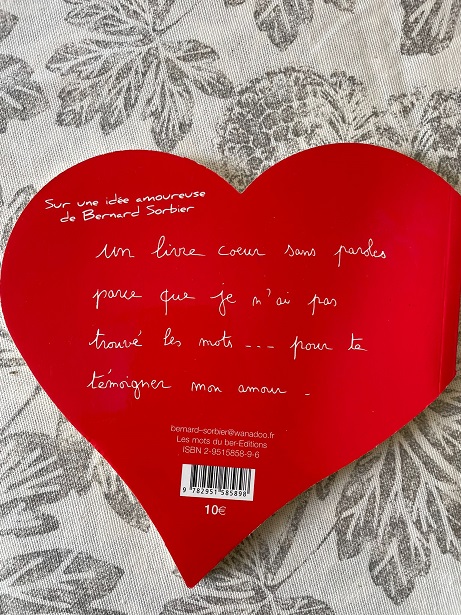 Sur une idée amoureuse
de Bernard Sorbier
un livre coeur sans paroles
parce que je n'ai pas
trouvé les mots --- pour te
témoigner mon amour -
bernard-sorbier@wanadoo.fr
Les mots du ber-Editions
ISBN 2-9515858-9-6
9 782951 585898
10€